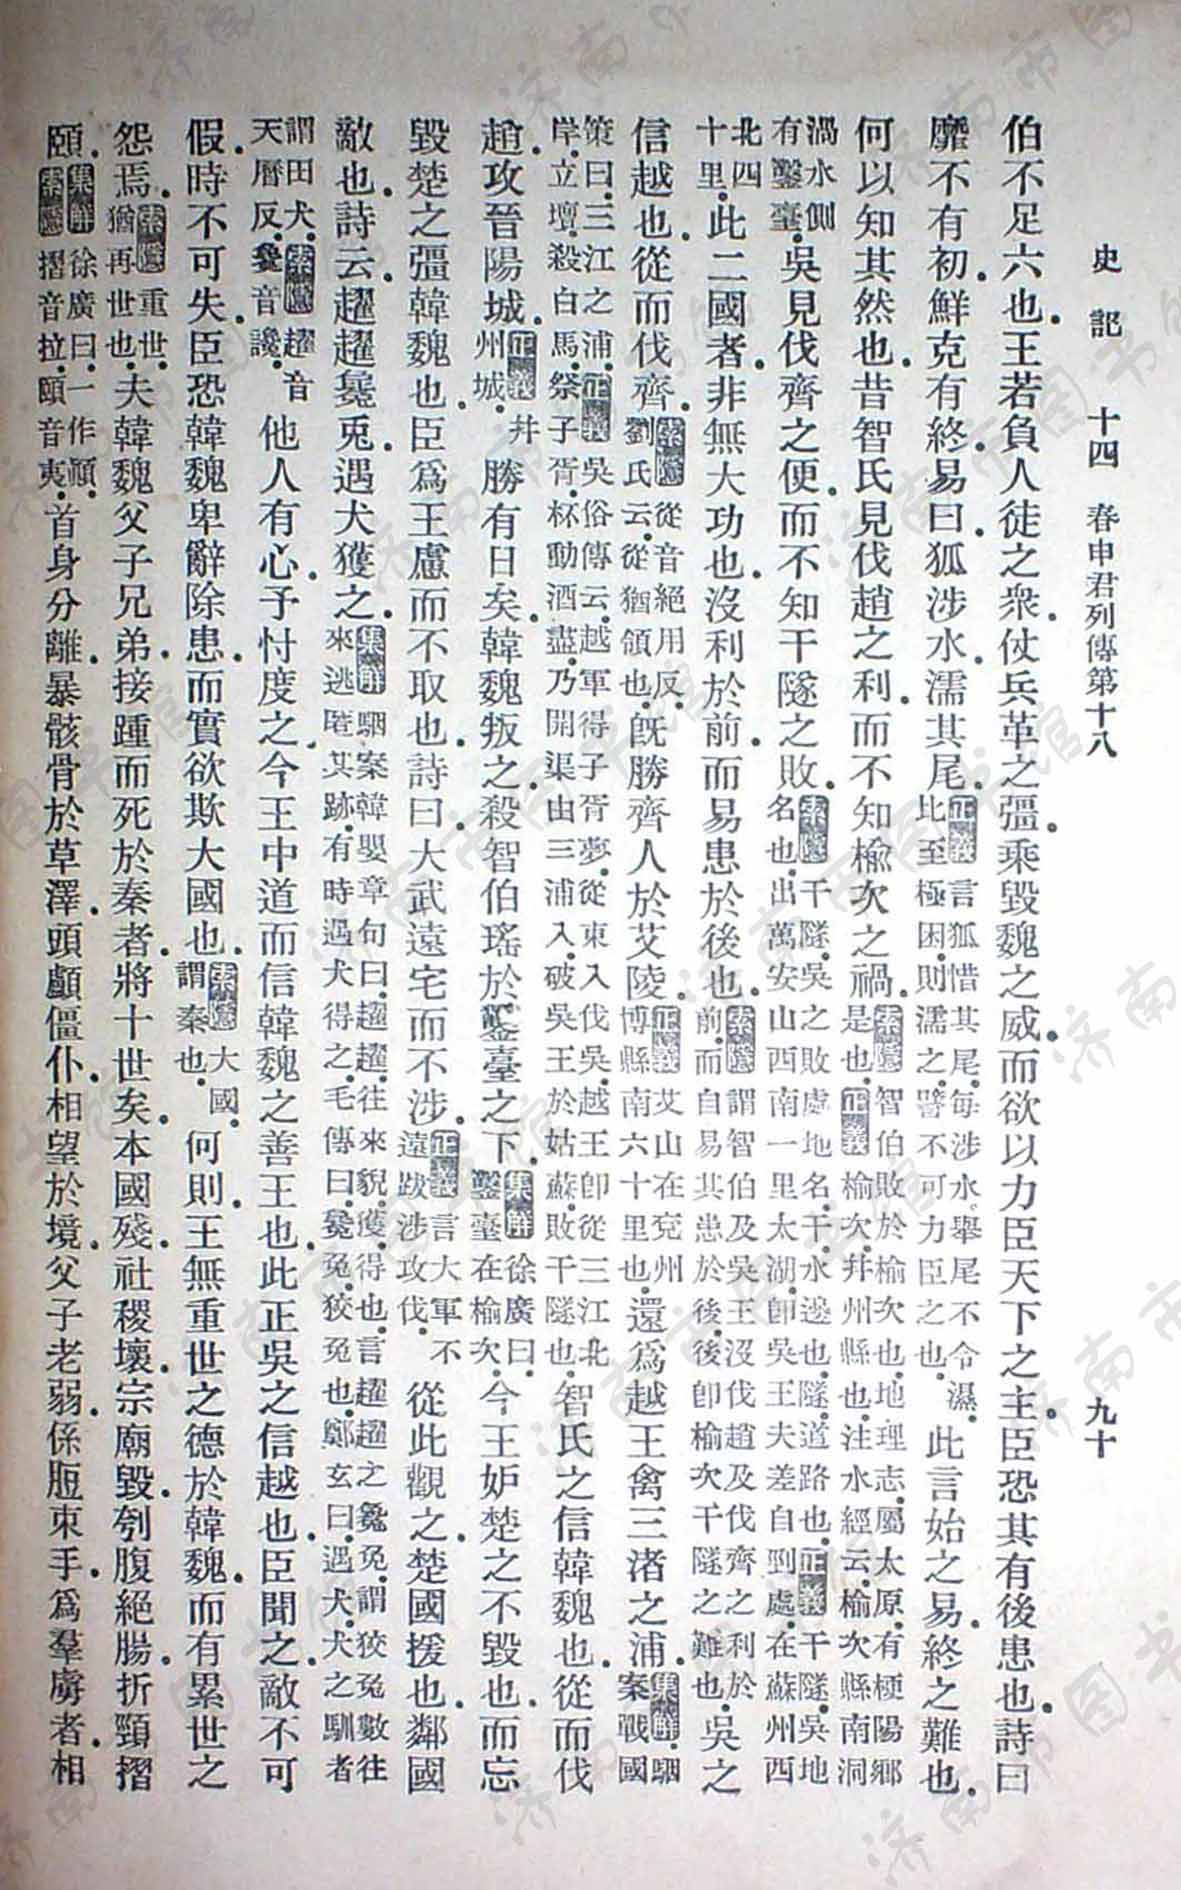 史記 十四 春申君列傳第十八 九十
伯不足六也王若負人徒之衆仗兵革之彊乘毀魏之威而欲以力臣天下之主臣恐其有後患也詩曰
靡不有初鮮克有終易曰狐涉水濡其尾正義言狐惜其尾每涉水舉尾不令濕比至極困則濡之譬不可力臣之也此言始之易終之難也
何以知其然也昔智氏見伐趙之利而不知榆次之禍索隱智伯敗於榆次也地理志屬太原有梗陽鄉是也正義榆次幷州縣也注水經云榆次縣南洞
渦水側有鑿臺吳見伐齊之便而不知干隧之敗索隱干隧吳之敗處地名干水邊也隧道路也正義干隧吳地名也出萬安山西南一里太湖卽吳王夫差自剄處在蘇州西
北四十里此二國者非無大功也沒利於前而易患於後也索隱謂智伯及吳王沒伐趙及伐齊之利於前而自易其患於後後卽榆次干隧之難也吳之
信越也從而伐齊索隱從音絕用反劉氏云從猶領也旣勝齊人於艾陵正義艾山在兗州博縣南六十里也還爲越王禽三渚之浦集解駰案戰國
策曰三江之浦正義吳俗傳云越軍得子胥夢從東入伐吳越王卽從三江北岸立壇殺白馬祭子胥杯動酒盡乃開渠由三浦入破吳王於姑蘇敗干隧也智氏之信韓魏也從而伐
趙攻晉陽城正義幷州城勝有日矣韓魏叛之殺智伯瑤於鑿臺之下集解徐廣曰鑿臺在榆次今王妒楚之不毀也而忘
毀楚之彊韓魏也臣爲王慮而不取也詩曰大武遠宅而不涉正義言大軍不遠跋涉攻伐從此觀之楚國援也鄰國
敵也詩云趯趯毚兎遇犬獲之集解駰案韓嬰章句曰趯趯往來貌獲得也言趯趯之毚兔謂狡兔數往來逃匿其跡有時遇犬得之毛傳曰毚兔狡兔也鄭玄曰遇犬犬之馴者
謂田犬索隱趯音天曆反毚音讒他人有心予忖度之今王中道而信韓魏之善王也此正吳之信越也臣聞之敵不可
假時不可失臣恐韓魏卑辭除患而實欲欺大國也索隱大國謂秦也何則王無重世之德於韓魏而有累世之
怨焉索隱重世猶再世也夫韓魏父子兄弟接踵而死於秦者將十世矣本國殘社稷壞宗廟毀刳腹絕腸折頸摺
頤集解徐廣曰一作顚索隱摺音拉頤音夷首身分離暴骸骨於草澤頭顱僵仆相望於境父子老弱係脰束手爲羣虜者相